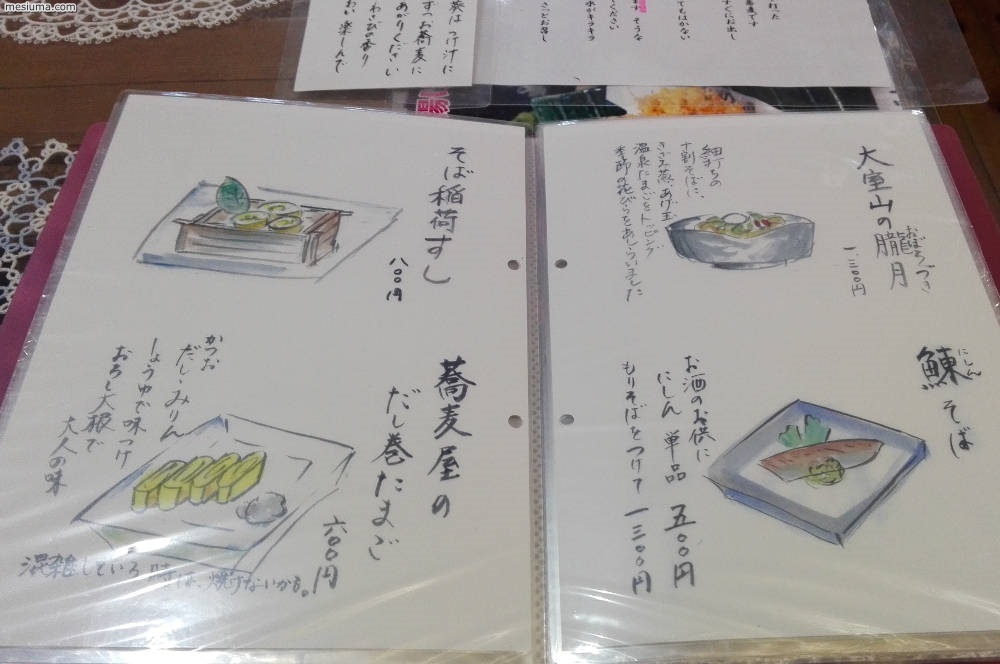 mesiuma.com
つけ汁に
ずつお蕎麦に
あがりください
わさびの香り
楽しんで
すぐにお出し
てもはかない
ください
水がキラキラ
大室山の朧月
おぼろづき
一、三〇〇円
細打ちの
十割そばに、
温泉たまごをトッピング
季節の花びらをあしらいました
鰊そば
にしん
お酒のお供に
にしん 単品 五〇〇円
もりそばをつけて 一三〇〇円
そば稲荷すし
八〇〇円
蕎麦屋の
だし巻たまご
六〇〇円
かつお
だし・みりん
しょうゆで味つけ
おろし大根で
大人の味
混雑している時は、焼けないかも。